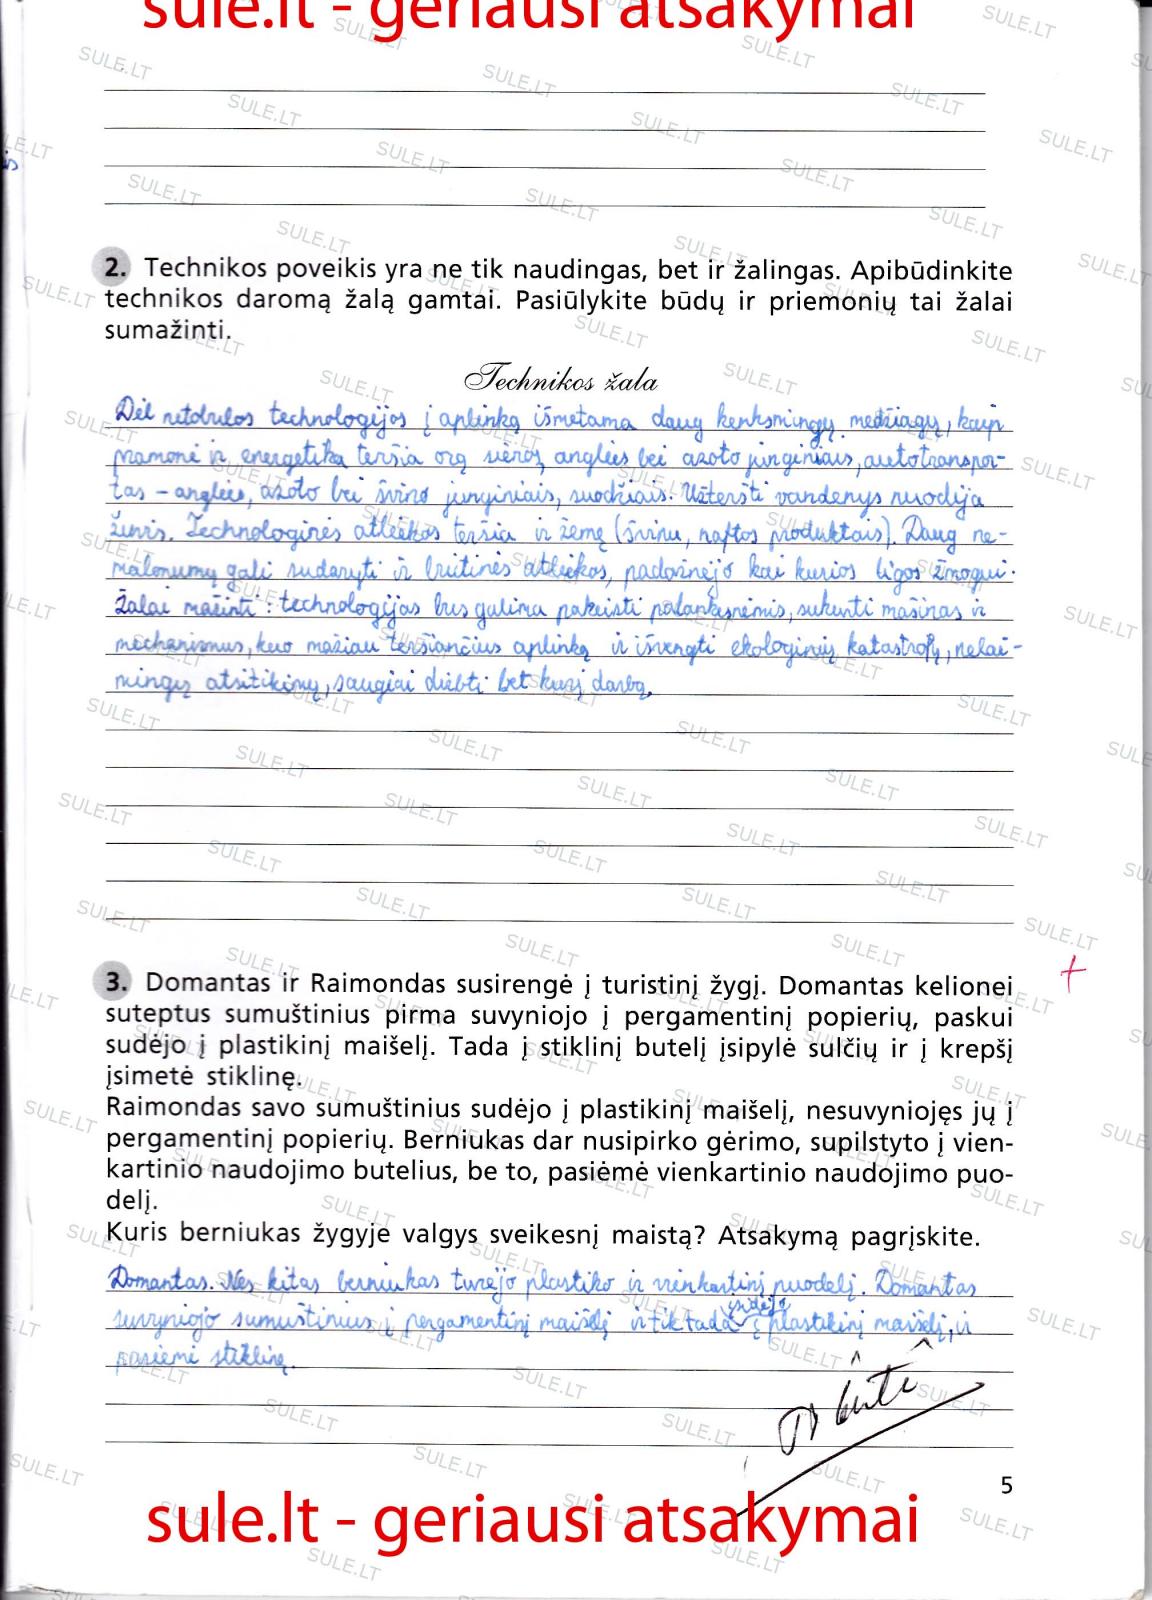 sule.lt - geriausi atsakymai
2. Technikos poveikis yra ne tik naudingas, bet ir žalingas. Apibūdinkite
technikos daromą žalą gamtai. Pasiūlykite būdų ir priemonių tai žalai
sumažinti.
Technikos žala
Dėl netobulos technologijos į aplinką išmetama daug kenksmingų medžiagų, kaip
pramonė ir energetika teršia orą sieros, anglies bei azoto junginiais, autotranspor-
tas - anglies, azoto bei švino junginiais, suodžiais. Užteršti vandenys nuodija
žuvis. Technologinės atliekos teršia ir žemę (švinu, naftos produktais). Daug ne-
malonumų gali sudaryti ir buitinės atliekos, padažnėjo kai kurios ligos žmogui.
Žalai mažinti: technologijas bus galima pakeisti palankesnėmis, sukurti mašinas ir
mechanizmus, kuo mažiau teršiančius aplinką ir išvengti ekologinių katastrofų, nelai-
mingų atsitikimų, saugiai dirbti bet kurį darbą.
3. Domantas ir Raimondas susirengė į turistinį žygį. Domantas kelionei
suteptus sumuštinius pirma suvyniojo į pergamentinį popierių, paskui
sudėjo į plastikinį maišelį. Tada į stiklinį butelį įsipylė sulčių ir į krepšį
įsimetė stiklinę.
Raimondas savo sumuštinius sudėjo į plastikinį maišelį, nesuvyniojęs jų į
pergamentinį popierių. Berniukas dar nusipirko gėrimo, supilstyto į vien-
kartinio naudojimo butelius, be to, pasiėmė vienkartinio naudojimo puo-
delį.
Kuris berniukas žygyje valgys sveikesnį maistą? Atsakymą pagrįskite.
Domantas. Nes kitas berniukas turėjo plastiko ir vienkartinį puodelį. Domantas
suvyniojo sumuštinius į pergamentinį maišelį ir tik tada įsidėjo į plastikinį maišelį, ir
pasiėmė stiklinę.
5
sule.lt - geriausi atsakymai